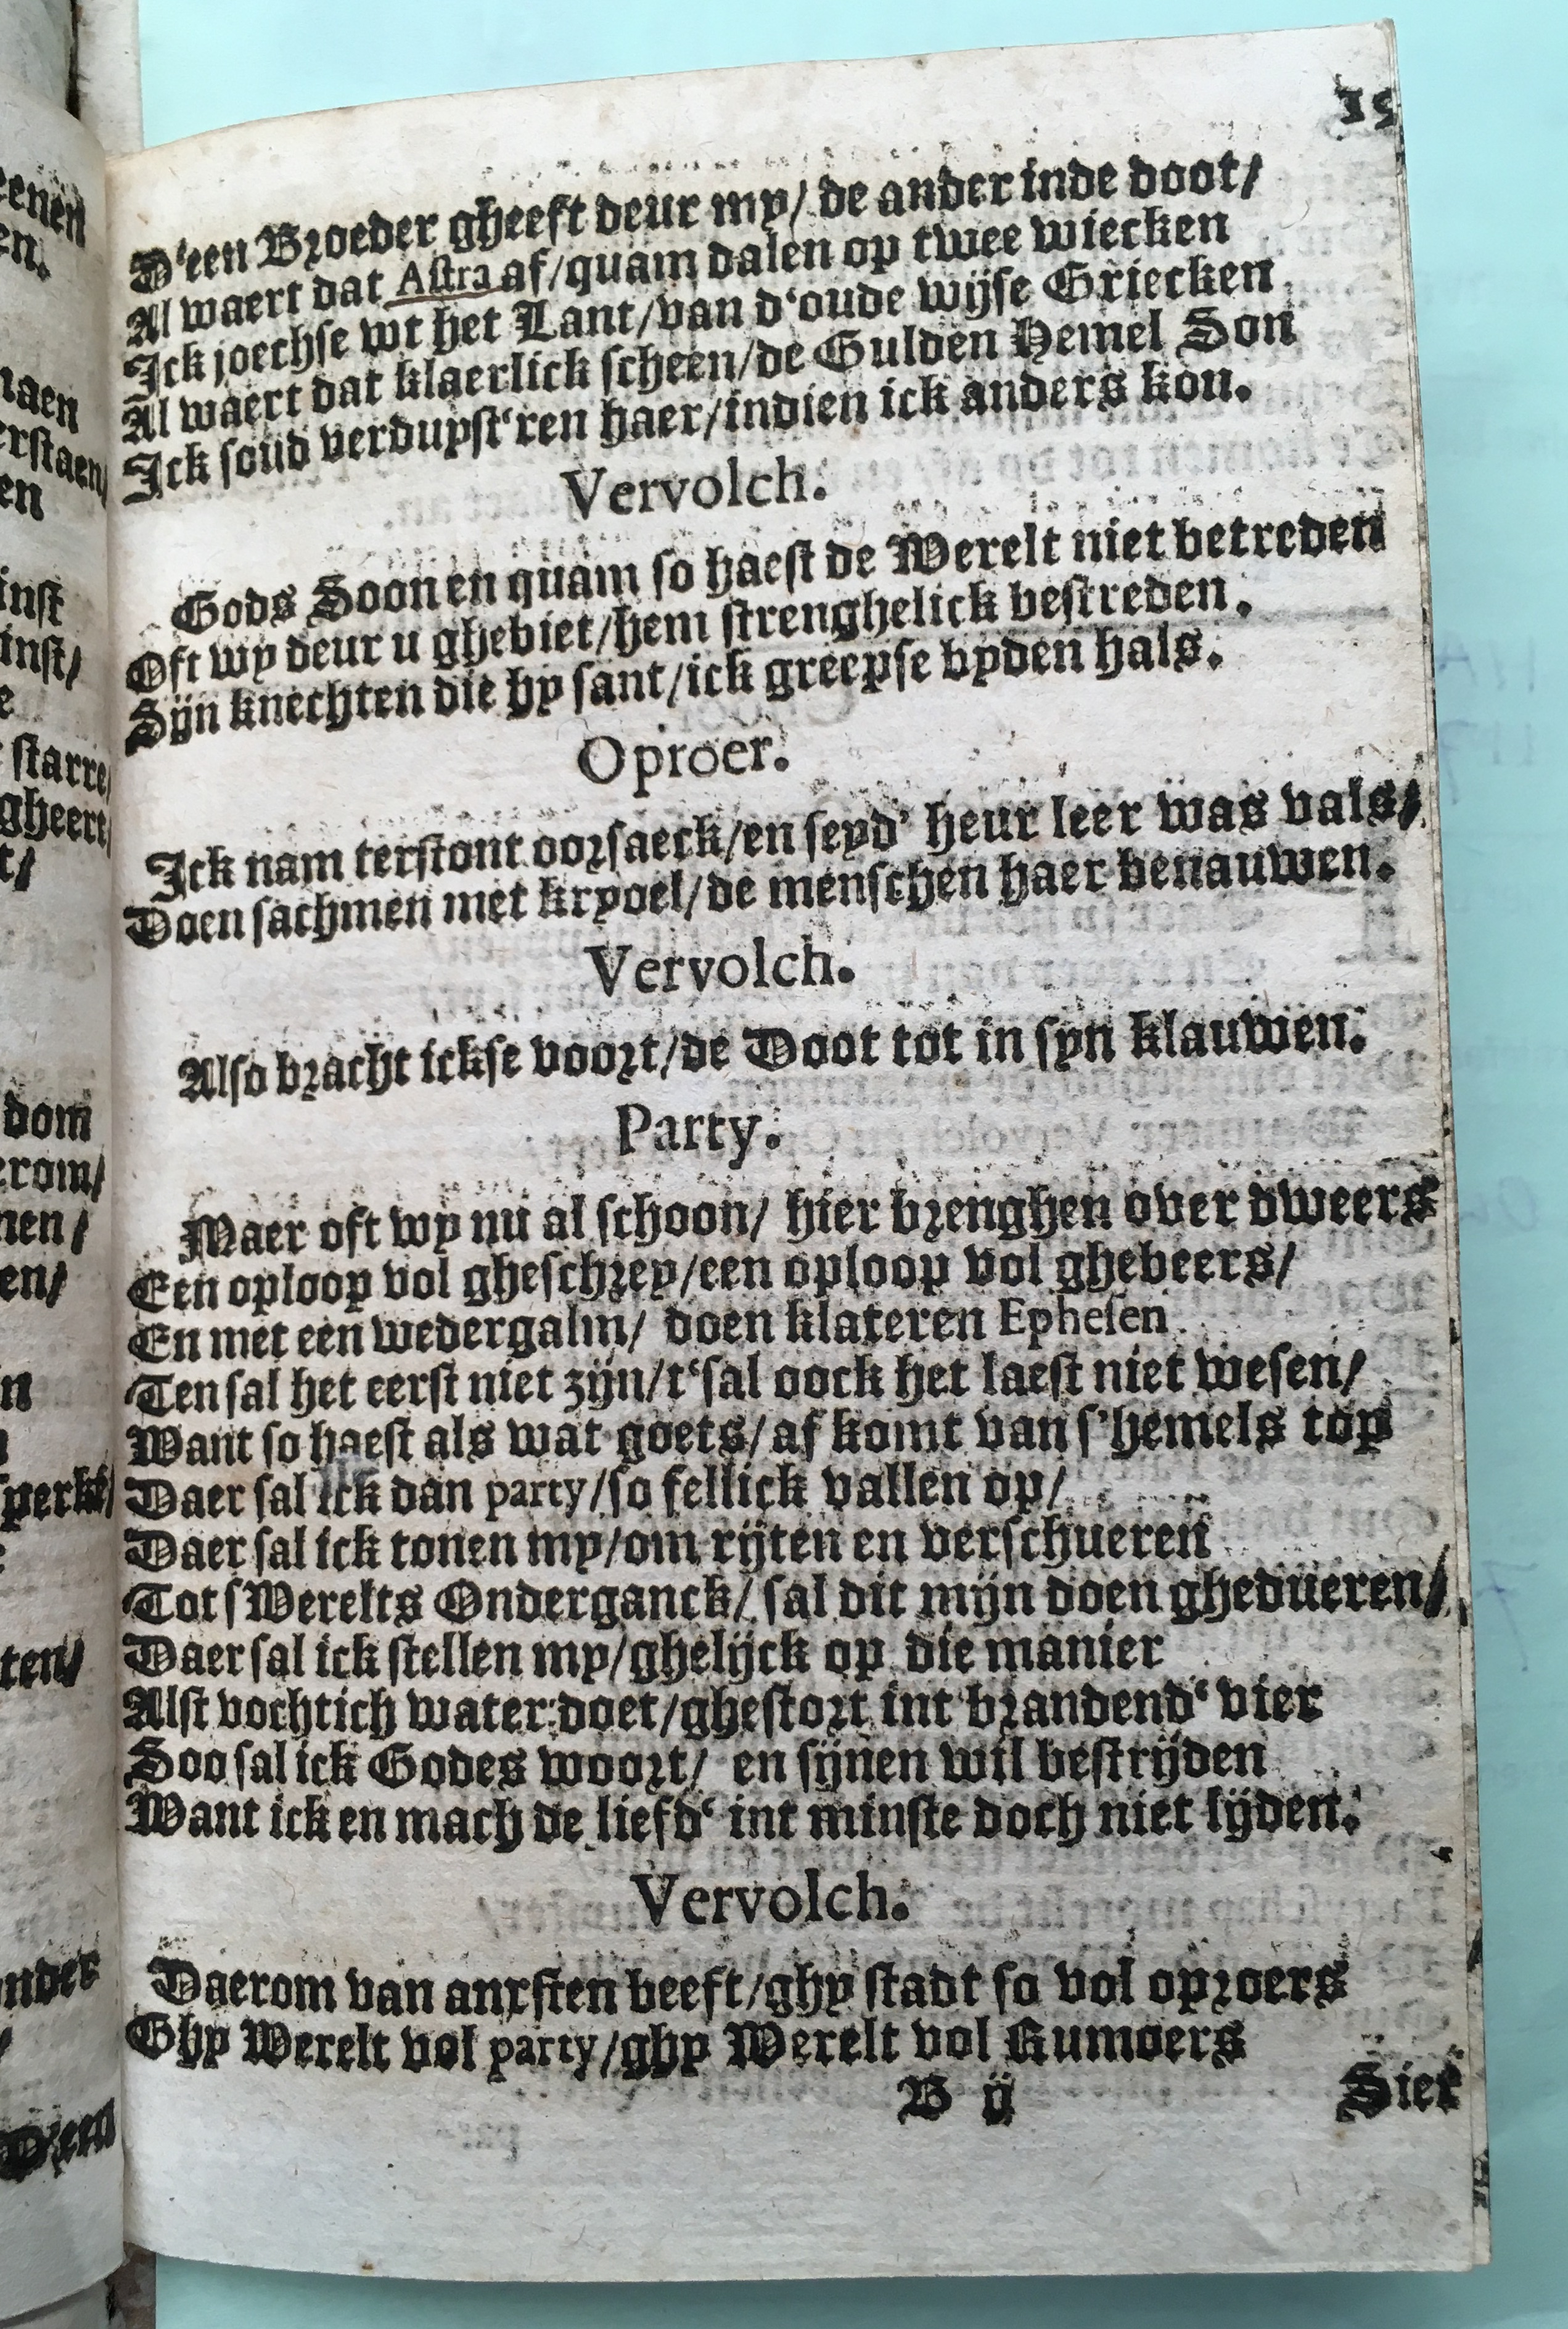 15
D'een Broeder gheeft deur my/ de ander inde doot/
Al waert dat Astra af/quam dalen op twee wiecken
Ick joechse wt het Lant/van d'oude wijse Griecken
Al waert dat klaerlick scheen/de Gulden Hemel Son
Ick soud verduyst'ren haer/indien ick anders kon.
Vervolch.
Gods Soon en quam so haest de Werelt niet betreden
Oft wy deur u ghebiet/hem strenghelick bestreden.
Sijn knechten die hy sant/ick greepse byden hals.
Oproer.
Ick nam terstont oorsaeck/en seyd' heur leer was vals/
Doen sachmen met kryoel/de menschen haer benauwen.
Vervolch.
Also bracht ickse voort/de Doot tot in syn klauwen.
Party.
Maer oft wy nu al schoon/ hier brenghen over dweers
Een oploop vol gheschrey/een oploop vol ghebeers/
En met een wedergalm/ doen klateren Ephesen
Ten sal het eerst niet zijn/t'sal oock het laest niet wesen/
Want so haest als wat goets/af komt van s'hemels top
Daer sal ick dan party/so fellick vallen op/
Daer sal ick tonen my/om rijten en verschueren
Tot sWerelts Onderganck/ sal dit mijn doen ghedueren/
Daer sal ick stellen my/ghelijck op die manier
Alst vochtich water doet/ghestort int brandend' vier
Soo sal ick Godes woort/ en sijnen wil bestrijden
Want ick en mach de liefd' int minste doch niet lijden.
Vervolch.
Daerom van anxsten beeft/ghy stadt so vol oproers
Ghy Werelt vol party/ghy Werelt vol Rumoers
B ij
Siet
eenen
en.
naen
erstaen/
en
inst
inst/
e
starre/
gheert/
t/
dom
erom/
nen/
en/
n
perkt/
ten/
onder
D'een